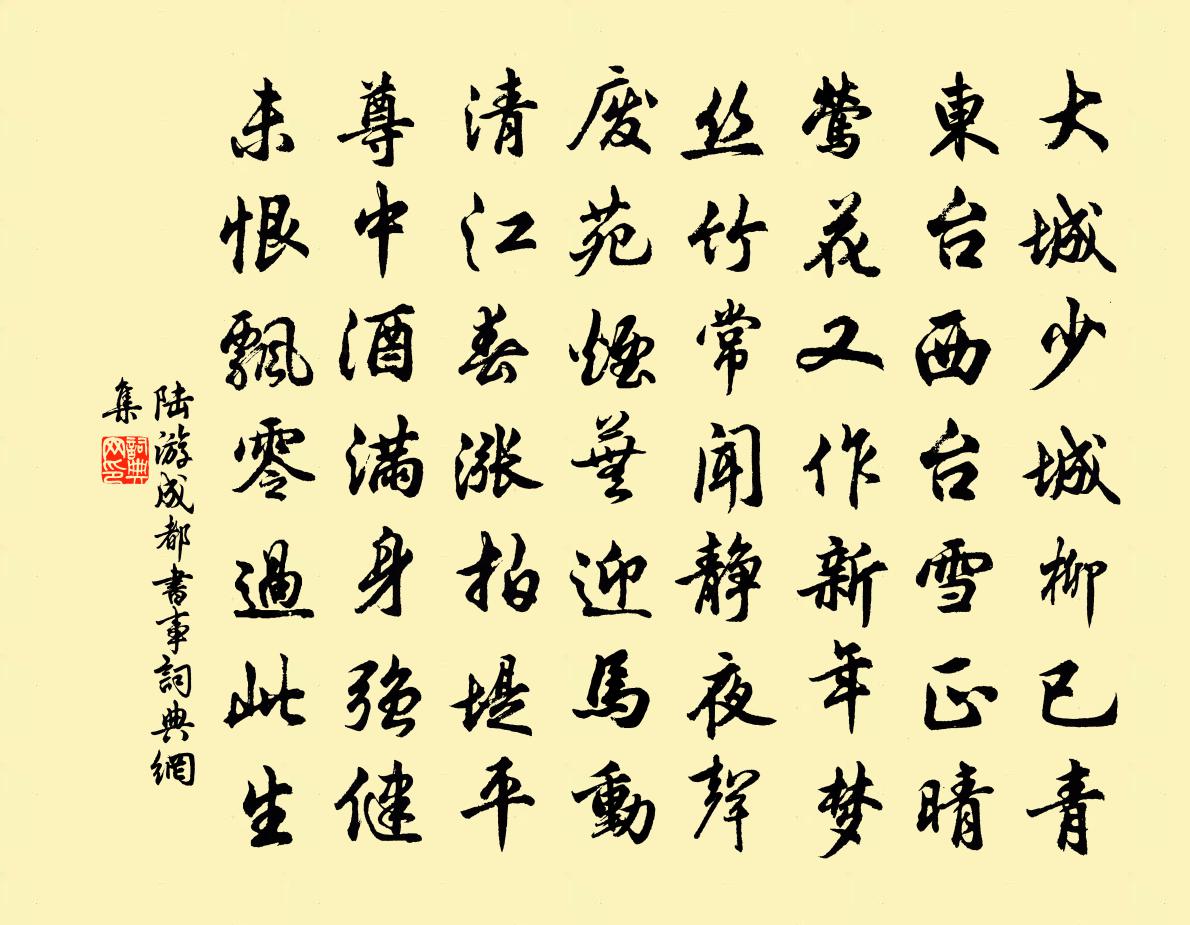 大城少城柳已青
東台西台雪正晴
莺花又作新年梦
丝竹常闻静夜聲
废苑煙蕪迎馬動
清江春漲拍堤平
尊中酒满身强健
未恨飄零過此生
陆游成都書事詞典網
集
詞典
网印